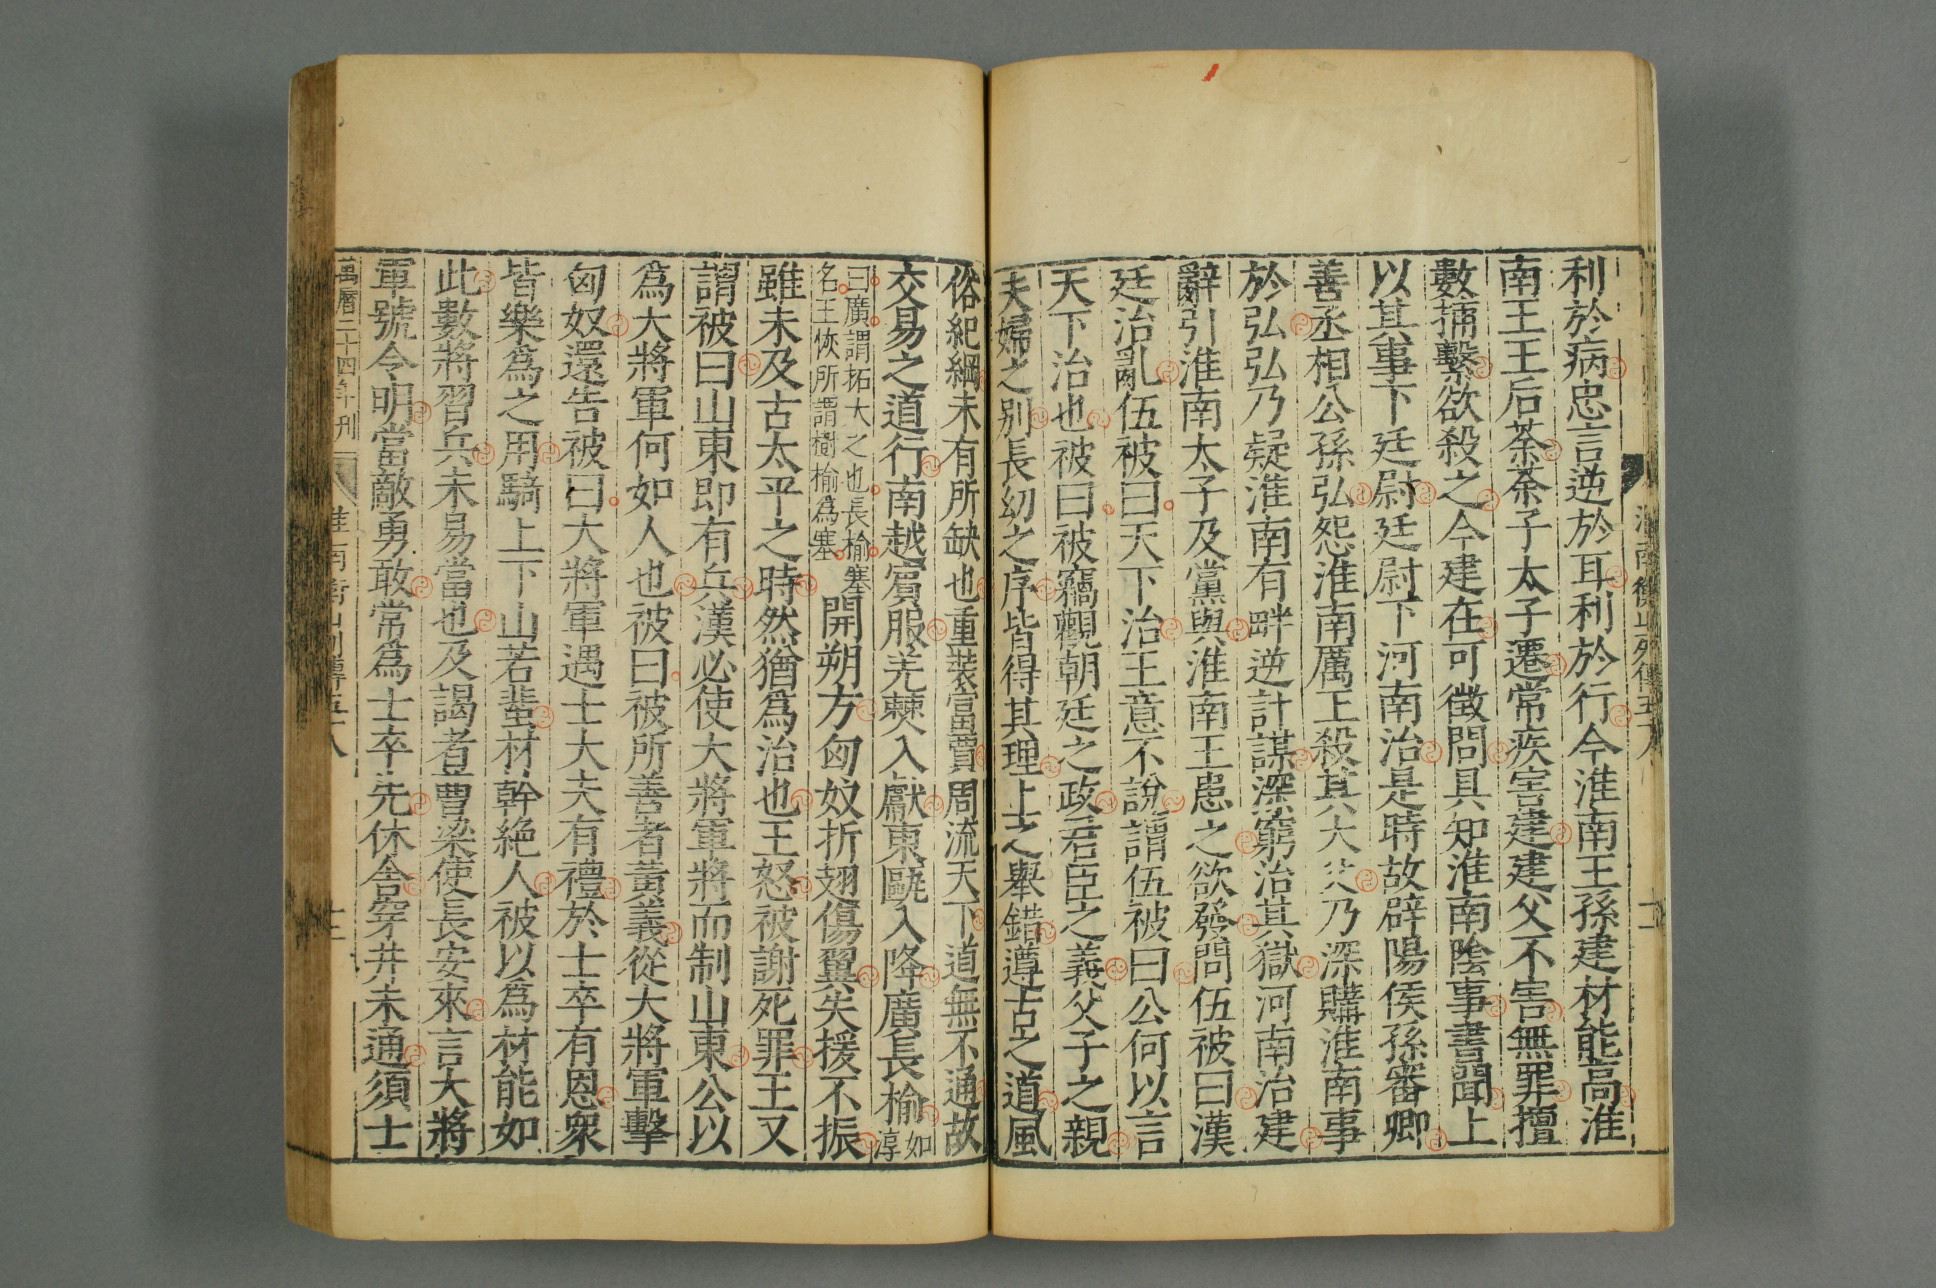 利於病忠言逆於耳利於行今淮南王孫建材能高淮
南王王后荼荼子太子遷常疾害建建父不害無罪擅
數捕繫欲殺之今建在可徵問具知淮南陰事書聞上
以其事下廷尉廷尉下河南治是時故辟陽侯孫審卿
善丞相公孫弘怨淮南厲王殺其大父乃深購淮南事
於弘弘乃疑淮南有畔逆計謀深窮治其獄河南治建
辭引淮南太子及黨與淮南王患之欲發問伍被曰漢
廷治亂伍被曰天下治王意不說謂伍被曰公何以言
天下治也被曰被竊觀朝廷之政君臣之義父子之親
夫婦之別長幼之序皆得其理上之舉錯遵古之道風
俗紀綱未有所缺也重裝富賈周流天下道無不通故
交易之道行南越賓服羌僰入獻東甌入降廣長榆如淳
曰廣謂拓大之也長榆塞
名王恢所謂樹榆為塞
開朔方匈奴折翅傷翼失援不振
雖未及古太平之時然猶為治也王怒被謝死罪王又
謂被曰山東即有兵漢必使大將軍將而制山東公以
為大將軍何如人也被曰被所善者黃義從大將軍擊
匈奴還告被曰大將軍遇士大夫有禮於士卒有恩衆
皆樂爲之用騎上下山若蜚材幹絕人被以爲材能如
此數將習兵未易當也及謁者曹梁使長安來言大將
軍號令明當敵勇敢常爲士卒先休舍穿井未通須士
萬曆二十四年刊
淮南衡山列傳五十八
十二